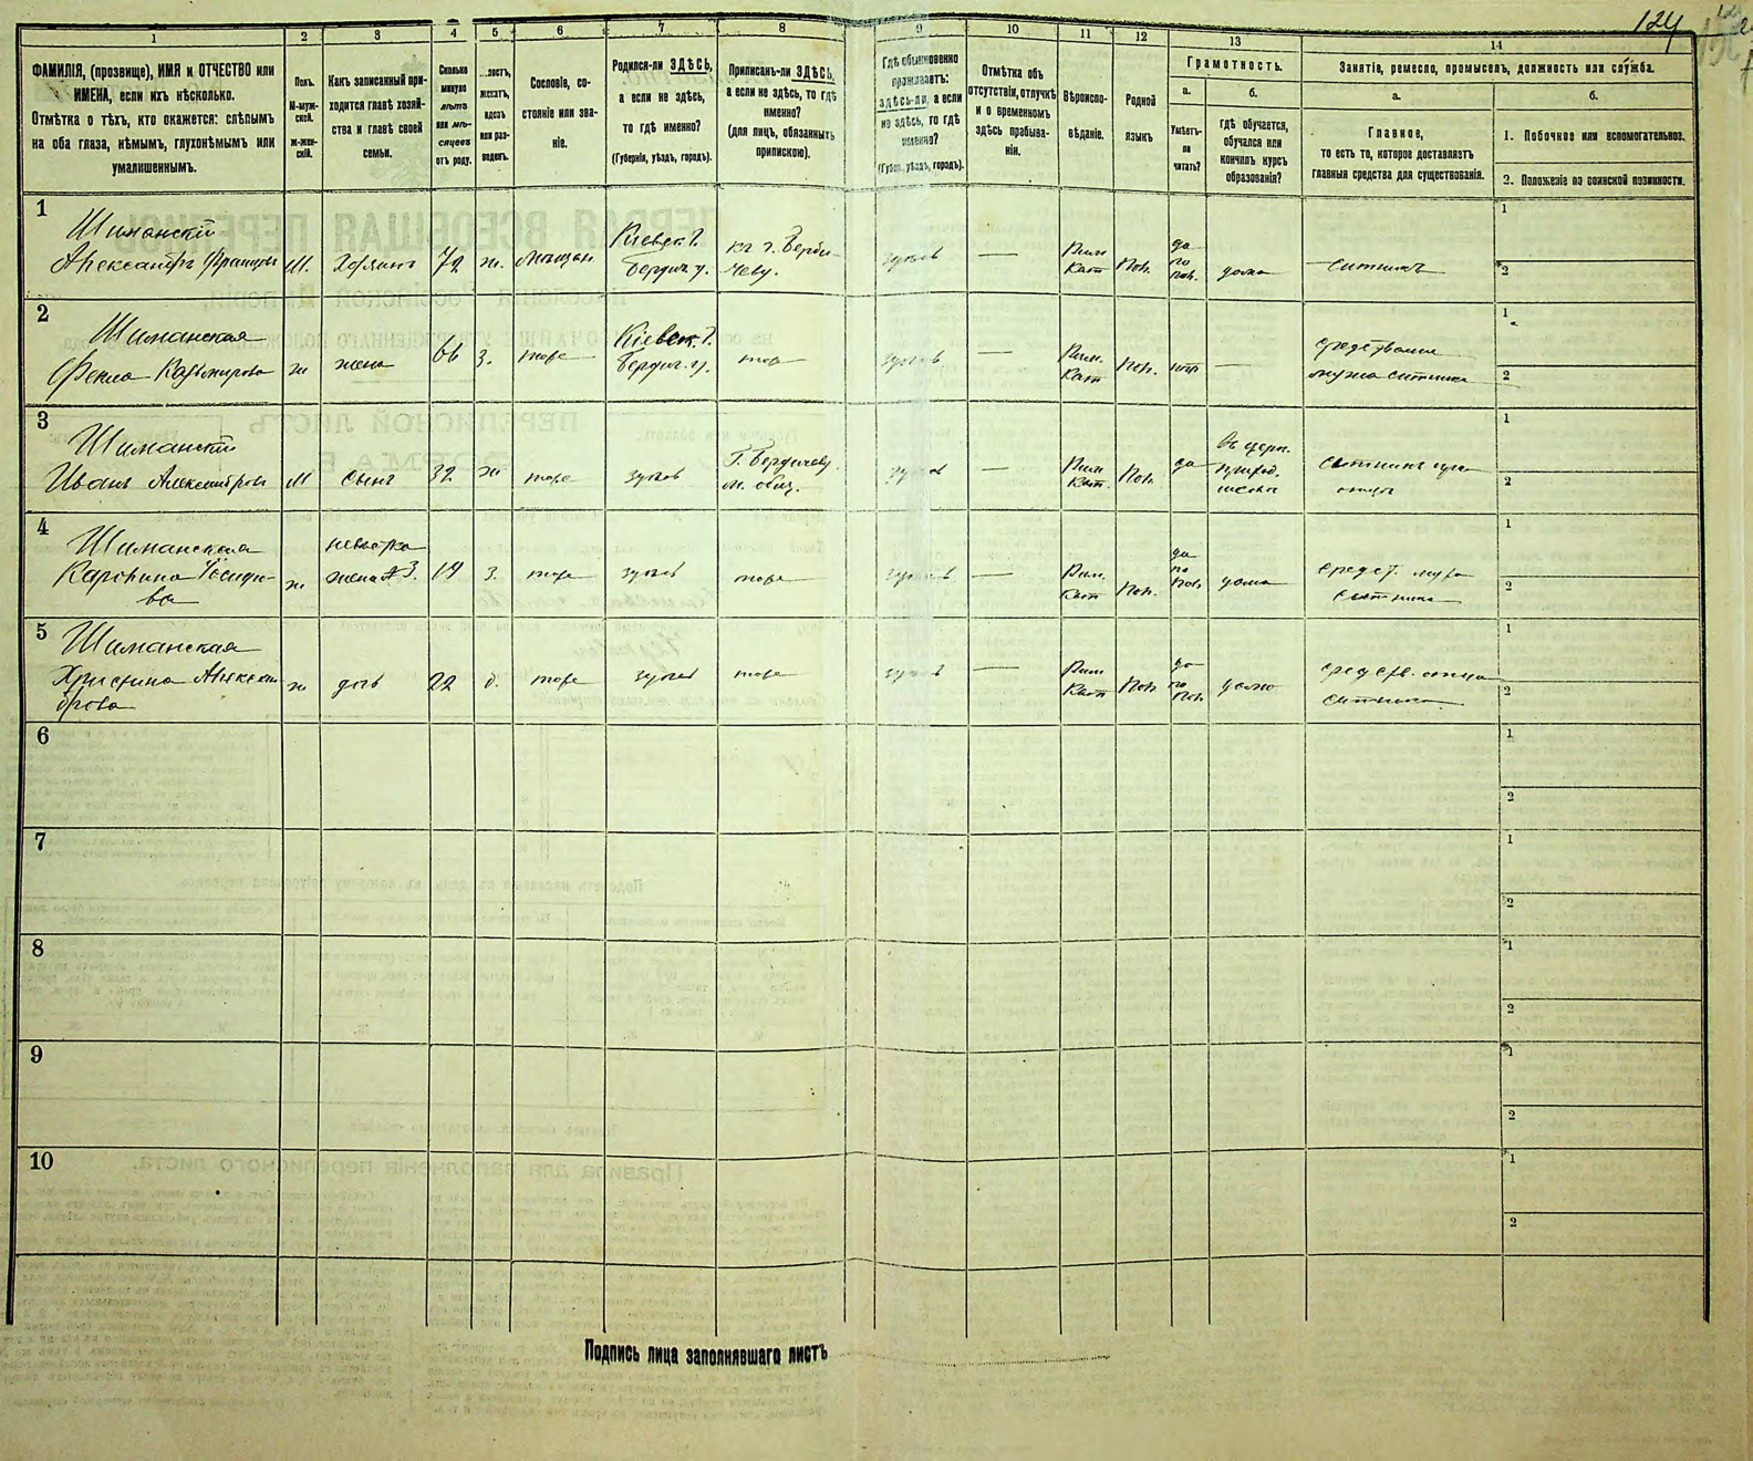 124
1 2 3 4 5 6 7 8 9 10 11 12 13 14
ФАМИЛІЯ, (прозвище), ИМЯ и ОТЧЕСТВО или
ИМЕНА, если ихъ нѣсколько.
Отмѣтка о тѣхъ, кто окажется: слѣпымъ
на оба глаза, нѣмымъ, глухонѣмымъ или
умалишеннымъ.
Полъ.
М-муж-
ской.
Ж-жен-
скій.
Какъ записанный при-
ходится главѣ хозяй-
ства и главѣ своей
семьи.
Сколько
минуло
лѣтъ
или мѣ-
сяцевъ
отъ роду.
женатъ,
вдовъ
или раз-
веденъ.
Сословіе, со-
стояніе или зва-
ніе.
Родился-ли ЗДѢСЬ,
а если не здѣсь,
то гдѣ именно?
(Губернія, уѣздъ, городъ).
Приписанъ-ли ЗДѢСЬ,
а если не здѣсь, то гдѣ
именно?
(для лицъ, обязанныхъ
припискою).
Гдѣ обыкновенно
проживаетъ:
здѣсь-ли, а если
не здѣсь, то гдѣ
именно?
(Губерн., уѣздъ, городъ).
Отмѣтка объ
отсутствіи, отлучкѣ
и о временномъ
здѣсь пребыва-
ніи.
Вѣроиспо-
вѣданіе.
Родной
языкъ
Грамотность.
а.
Умѣетъ-
ли
читать?
б.
гдѣ обучается,
обучался или
кончилъ курсъ
образованія?
Занятіе, ремесло, промыселъ, должность или служба.
а.
Главное,
то есть то, которое доставляетъ
главныя средства для существованія.
б.
1. Побочное или вспомогательное.
2. Положеніе по воинской повинности.
1
Шиманскій
Александръ Францовъ М. Хозяинъ 72 ж. мѣщан Кіевск. г. Бердич. у. къ г. Берди-
чеву. здѣсь — Рим. Кат. Пол. да по пол. дома ситникъ
1
2
2
Шиманская
Фекла Казимирова ж жена 66 З. тоже Кіевск. г. Бердич. у. тоже здѣсь — Рим. Кат Пол. нѣтъ —
средствами
мужа ситника
1
2
3
Шиманскій
Иванъ Александровъ М сынъ 32 ж тоже здѣсь Г. Бердичеву. м. общ. здѣсь — Рим Кат. Пол. да въ церк.
приход.
школѣ
ситникъ при
отцѣ
1
2
4
Шиманская
Каролина Іосифо-
ва ж невѣстка
жена №3. 19 З. тоже здѣсь тоже здѣсь — Рим. Кат Пол. да по пол. дома
средст. мужа
ситника
1
2
5
Шиманская
Христина Александ
рова ж дочь 22 д. тоже здѣсь тоже здѣсь — Рим Кат Пол. да по пол. дома
средств. отца
ситника
1
2
6
1
2
7
1
2
8
1
2
9
1
2
10
1
2
Подпись лица заполнявшаго листъ